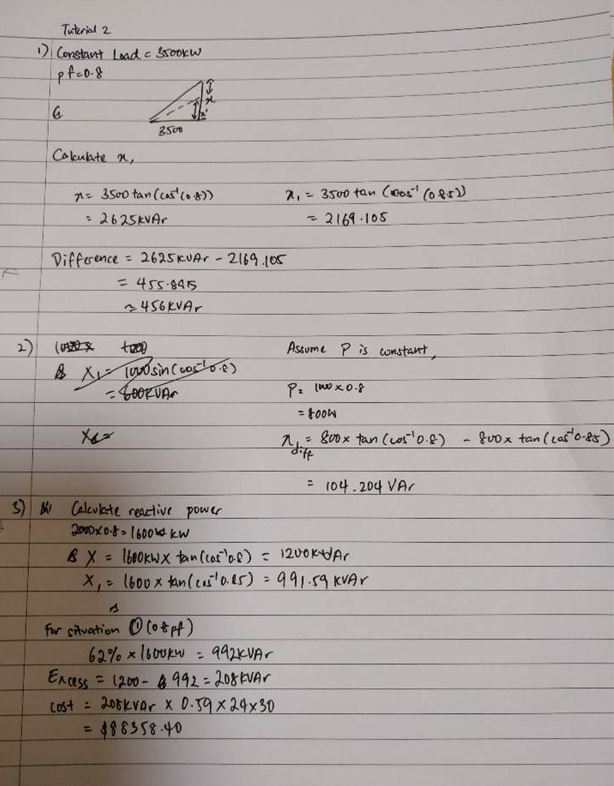 Tutorial 2
1) Constant Load = 3500kW
pf=0.8
Q
x
x'
3500
Calculate x,
x = 3500 tan(cos⁻¹(0.8))
= 2625kVAr
x₁ = 3500 tan (cos⁻¹(0.85))
= 2169.105
Difference = 2625kVAr - 2169.105
= 455.895
≈ 456kVAr
2)
X₁ = 1000sin(cos⁻¹0.8)
= 600kVAr
Assume P is constant,
P = 1000 x 0.8
= 800W
x diff = 800 x tan(cos⁻¹0.8) - 800 x tan(cos⁻¹0.85)
= 104.204 VAr
3) Calculate reactive power
2000x0.8 = 1600 kW
X = 1600kW x tan(cos⁻¹0.8) = 1200kVAr
X₁ = 1600 x tan(cos⁻¹0.85) = 991.59 kVAr
For situation ① (0.8pf)
62% x 1600kW = 992kVAr
Excess = 1200 - 992 = 208kVAr
Cost = 208kVAr x 0.59 x 24x30
= $88358.40